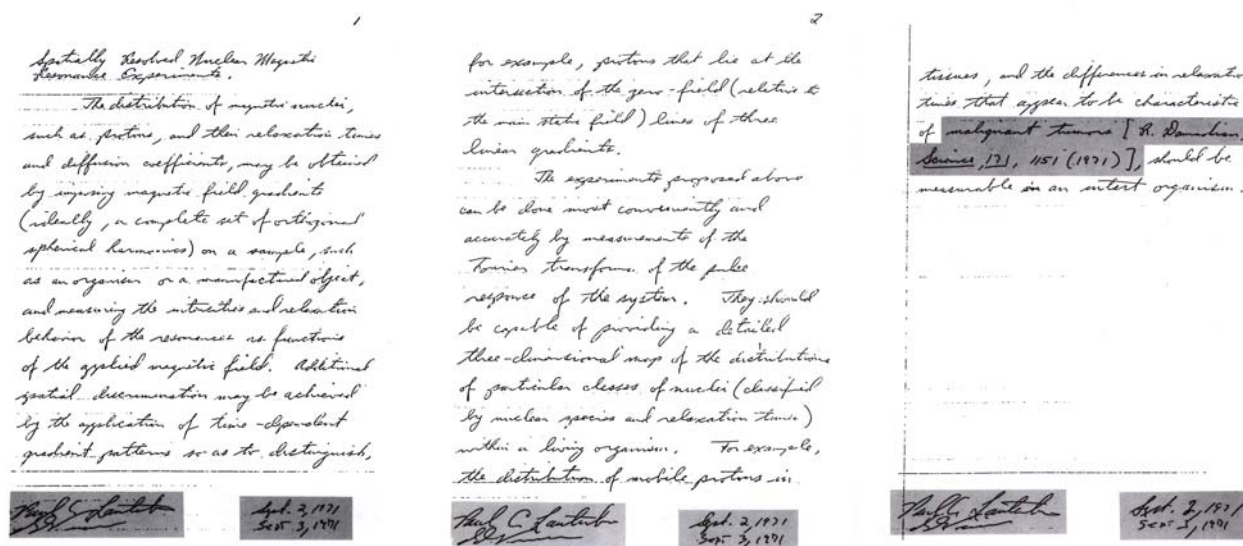 1
Spatially Resolved Nuclear Magnetic
Resonance Experiments.
The distribution of magnetic nuclei,
such as protons, and their relaxation times
and diffusion coefficients, may be obtained
by imposing magnetic field gradients
(ideally, a complete set of orthogonal
spherical harmonics) on a sample, such
as an organism or a manufactured object,
and measuring the intensities and relaxation
behavior of the resonances as functions
of the applied magnetic field. Additional
spatial discrimination may be achieved
by the application of time-dependent
gradient patterns so as to distinguish,
Paul C. Lauterbur
Sept. 2, 1971
Sept 3, 1971
2
for example, protons that lie at the
intersection of the zero-field (relative to
the main static field) lines of three
linear gradients.
The experiments proposed above
can be done most conveniently and
accurately by measurements of the
Fourier transform of the pulse
response of the system. They should
be capable of providing a detailed
three-dimensional map of the distributions
of particular classes of nuclei (classified
by nuclear species and relaxation times)
within a living organism. For example,
the distribution of mobile protons in
Paul C. Lauterbur
Sept. 2, 1971
Sept 3, 1971
tissues, and the differences in relaxation
times that appear to be characteristic
of malignant tumors [R. Damadian,
Science, 171, 1151 (1971)], should be
measurable in an intact organism.
Paul C. Lauterbur
Sept. 2, 1971
Sept 3, 1971